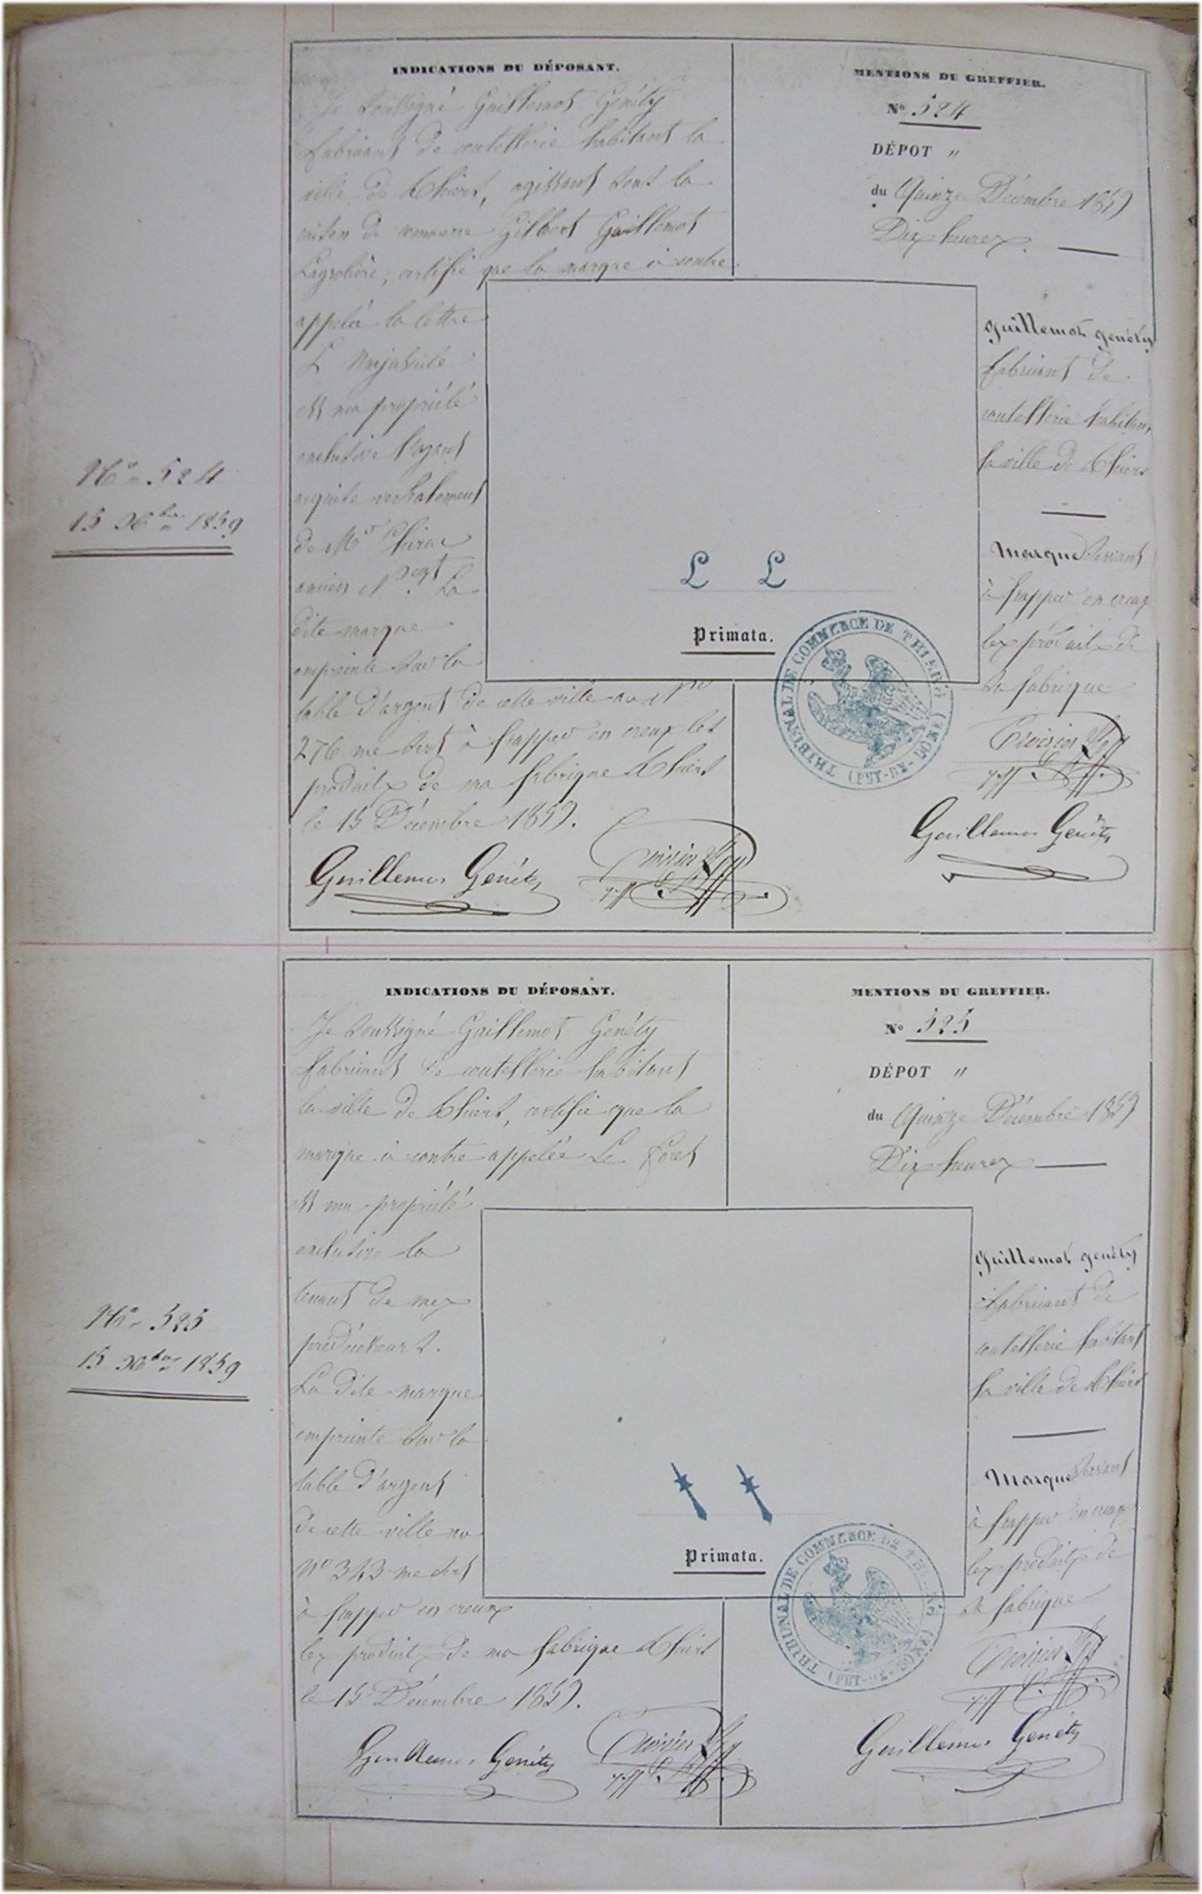 N° 524
15 Xbre 1859
INDICATIONS DU DÉPOSANT.
Je soussigné Guillemot Genéty
fabricant de coutellerie habitant la
ville de Thiers, agissant sous la
raison de commerce Gilbert Guillemot
Lagrolière, certifie que la marque ci contre
appelée la lettre
L Majuscule
est ma propriété
exclusive l'ayant
acquise verbalement
de Mr
ancien La
dite marque
empreinte sur la
table d'argent de cette ville au n°
276 me sert à frapper en creux les
produits de ma fabrique Thiers
le 15 Décembre 1859.
Guillemot Genéty
MENTIONS DU GREFFIER.
N° 524
DÉPOT "
du Quinze Décembre 1859
Dix heures
Guillemot Genéty
fabricant de
coutellerie habitant
la ville de Thiers
Marque servant
à frapper en creux
les produits de
sa fabrique
Guillemot Genéty
L L
Primata.
TRIBUNAL DE COMMERCE DE THIERS (PUY-DE-DOME)
N° 525
15 Xbre 1859
INDICATIONS DU DÉPOSANT.
Je soussigné Guillemot Genéty
fabricant de coutellerie habitant
la ville de Thiers, certifie que la
marque ci contre appelée Le Foret
est ma propriété
exclusive la
tenant de mes
prédécesseurs.
La dite marque
empreinte sur la
table d'argent
de cette ville au
N° 343 me sert
à frapper en creux
les produits de ma fabrique Thiers
le 15 Décembre 1859.
Guillemot Genéty
MENTIONS DU GREFFIER.
N° 525
DÉPOT "
du Quinze Décembre 1859
Dix heures
Guillemot Genéty
fabricant de
coutellerie habitant
la ville de Thiers
Marque servant
à frapper en creux
les produits de
sa fabrique
Guillemot Genéty
Primata.
TRIBUNAL DE COMMERCE DE THIERS (PUY-DE-DOME)